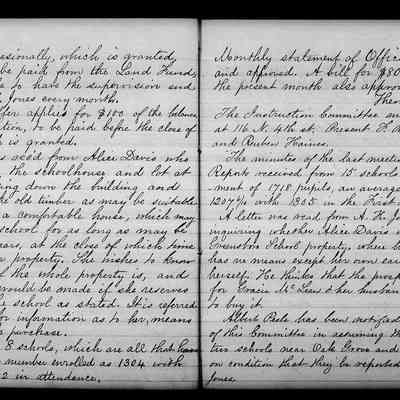 esionally, which is granted,
be paid from the Land Fund,
to have the supervision and
Jones every month.
fer applies for $100 of the balance
tion, to be paid before the close of
h is granted.
as rec'd from Alice Davis who
the schoolhouse and lot at
ing down the building and
e old timber as may be suitable
a comfortable house, which may
school for as long as may be
ears, at the close of which time
r property. She wishes to know
f the whole property is, and
would be made if she reserves
a school as stated. It is referred
for information as to her means
purchase.
8 schools, which are all that have
number enrolled as 1304 with
2 in attendance.
Monthly statement of Offic
and approved. A bill for $80
the present month also approv
Then
The Instruction Committee m
at 116 N. 4th st. Present F. 
and Ruben Haines.
The minutes of the last meetin
Reports received from 15 schools
ment of 1718 pupils, an average
1207 % with 1305 in the First
A letter was read from A. H. Jo
inquiring whether Alice Davis
School property, where 
has no means except her own ear
herself. He thinks that the prosp
for Mc & her husban
to buy it.
Albert Peele has been notified
of this Committee in assuming th
two schools near Oak Grove and
on condition that they be reported
Jones.